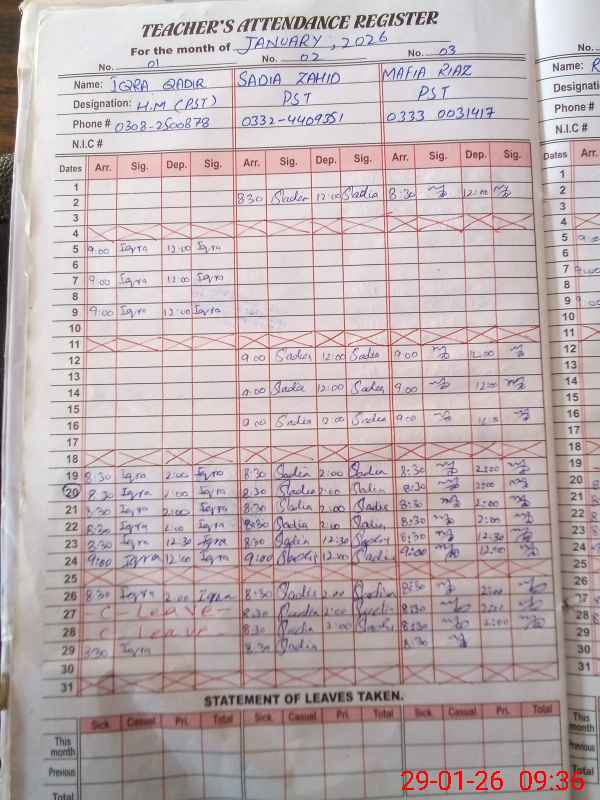 TEACHER'S ATTENDANCE REGISTER
For the month of JANUARY, 2026
No. 01 No. 02 No. 03
Name: IQRA QADIR SADIA ZAHID MAFIA RIAZ
Designation: H.M (PST) PST PST
Phone # 0308-2500878 0332-4409351 0333 0031417
N.I.C #
Dates Arr. Sig. Dep. Sig. Arr. Sig. Dep. Sig. Arr. Sig. Dep. Sig.
1
2 8:30 Sadia 12:00 Sadia 8:30 12:00
3
4
5 9:00 Iqra 12:00 Iqra
6
7 9:00 Iqra 12:00 Iqra
8
9 9:00 Iqra 12:00 Iqra
10
11
12 9:00 Sadia 12:00 Sadia 9:00 12:00
13
14 9:00 Sadia 12:00 Sadia 9:00 12:00
15
16 9:00 Sadia Sadia 9:00
17
18
19 8:30 Iqra 2:00 Iqra 8:30 Sadia 2:00 Sadia 8:30 2:00
20 8:30 Iqra 2:00 Iqra 8:30 Sadia 2:00 Sadia 8:30 2:00
21 8:30 Iqra 2:00 Iqra 8:30 Sadia 2:00 Sadia 8:30 2:00
22 8:30 Iqra 2:00 Iqra 8:30 Sadia 2:00 Sadia 8:30 2:00
23 8:30 Iqra 12:30 Iqra 8:30 Sadia 12:30 Sadia 8:30 12:30
24 9:00 Iqra 12:00 Iqra 9:00 Sadia 12:00 Sadia 9:00 12:00
25
26 8:30 Iqra 2:00 Iqra 8:30 Sadia 2:00 Sadia 8:30 2:00
27 C Leave - 8:30 Sadia 2:00 Sadia 8:30 2:00
28 C Leave - 8:30 Sadia 2:00 Sadia 8:30 2:00
29 8:30 Iqra 8:30 Sadia 8:30
30
31
STATEMENT OF LEAVES TAKEN.
Sick Casual Pri. Total Sick Casual Pri. Total Sick Casual Pri. Total
This month
Previous
Total
No.
Name: R
Designati
Phone #
N.I.C #
Dates Arr.
1
2
3
4
5
6
7
8
9
10
11
12
13
14
15
16
17
18
19
20
21
22
23
24
26
27
28
29
30
31
This month
Previous
Total
29-01-26 09:36